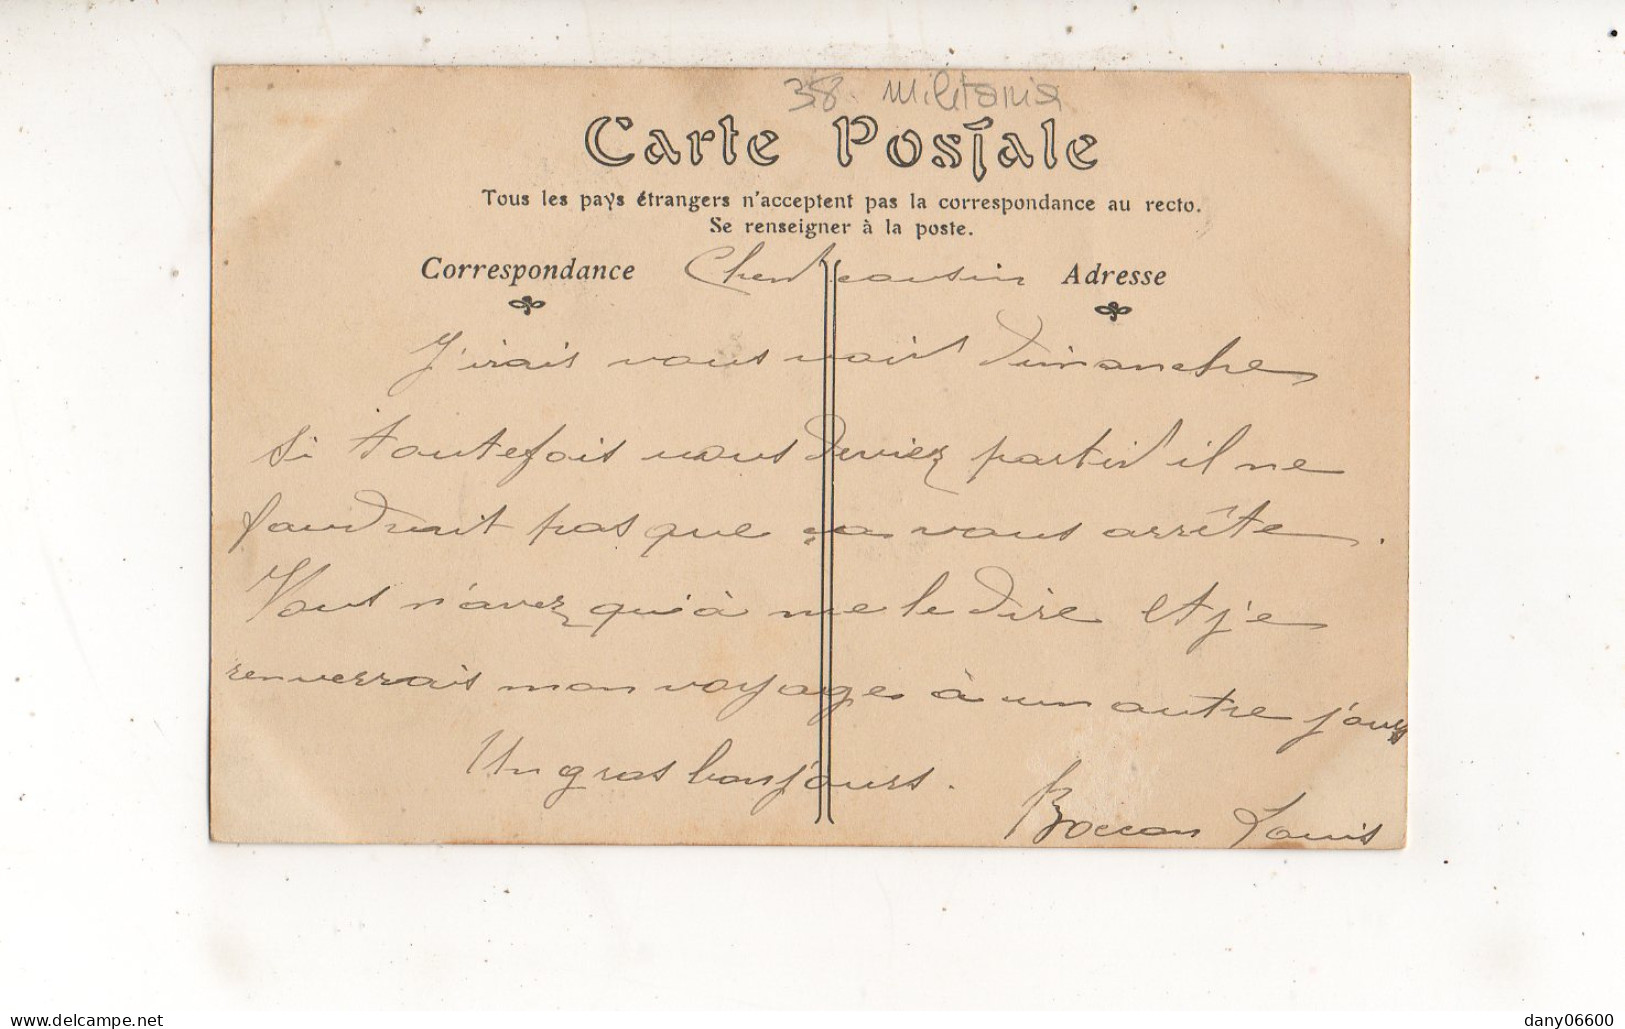 38. Militaria
Carte Postale
Tous les pays étrangers n'acceptent pas la correspondance au recto.
Se renseigner à la poste.
Correspondance Cher cousin Adresse
J'irais vous voir Dimanche
si toutefois vous deviez partir il ne
faudrait pas que ça vous arrête.
Vous n'avez qu'à me le dire et je
renverrais mon voyage à un autre jours
Un gros bonjours. Louis
www.delcampe.net
dany06600